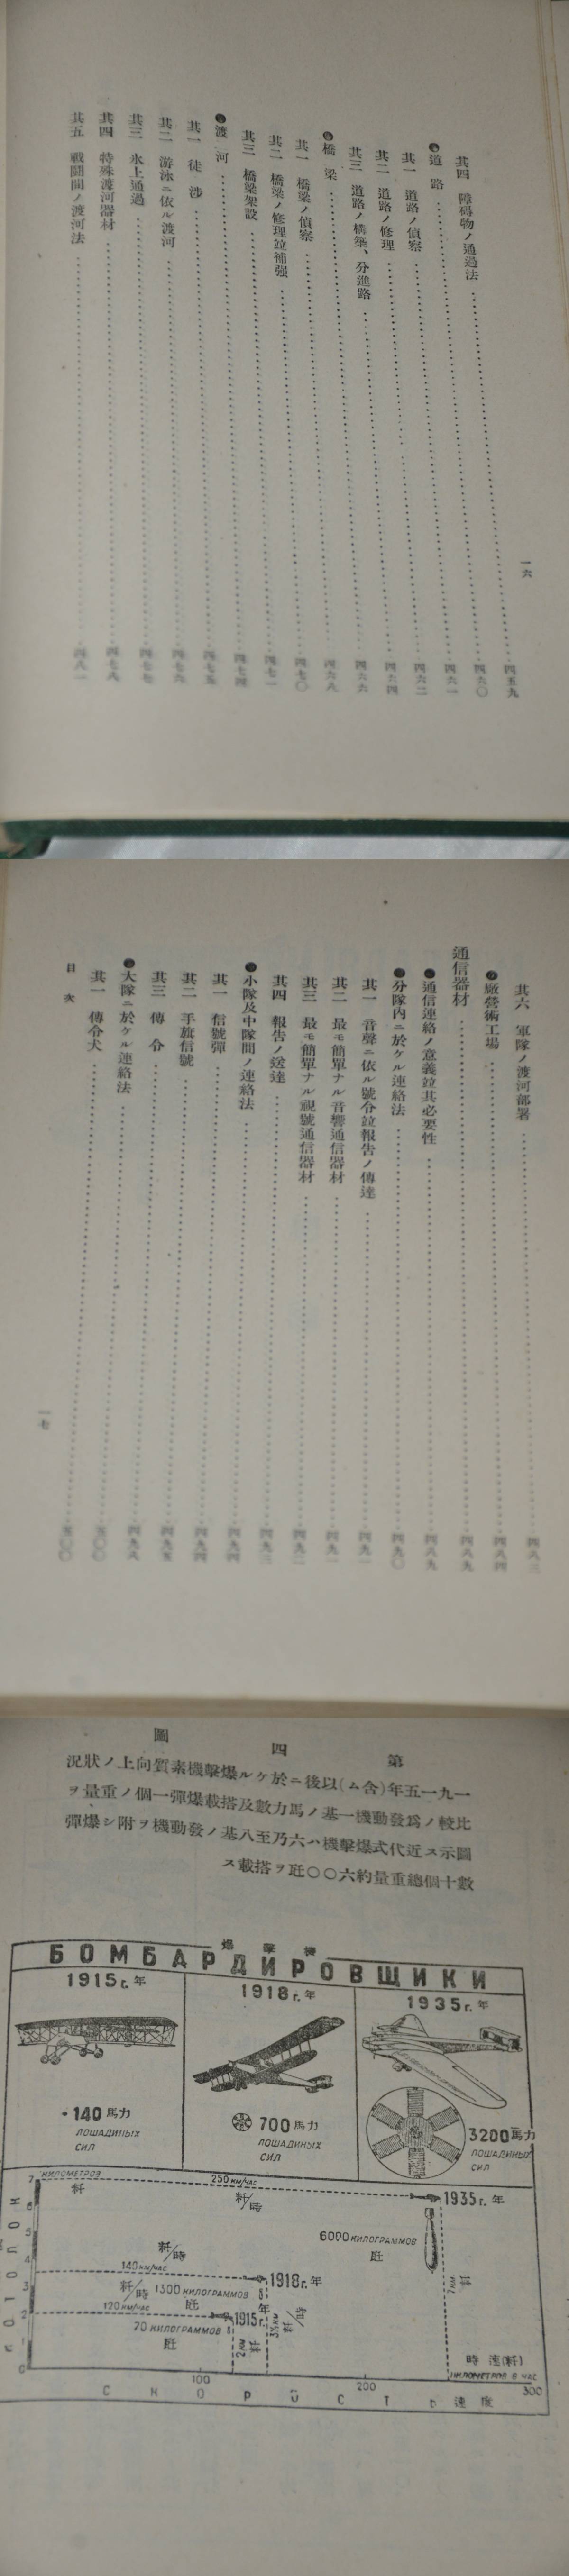 一六
其四 障碍物ノ通過法 四五九
●道路 四六〇
其一 道路ノ偵察 四六一
其二 道路ノ修理 四六二
其三 道路ノ構築、分進路 四六四
●橋梁 四六六
其一 橋梁ノ偵察 四六八
其二 橋梁ノ修理竝補强 四七〇
其三 橋梁架設 四七一
●渡河 四七四
其一 徒涉 四七五
其二 游泳ニ依ル渡河 四七六
其三 氷上通過 四七七
其四 特殊渡河器材 四七八
其五 戰鬪間ノ渡河法 四八一
其六 軍隊ノ渡河部署 四八三
●廠營術工場 四八四
通信器材 四八九
●通信連絡ノ意義竝其必要性 四八九
●分隊內ニ於ケル連絡法 四九〇
其一 音聲ニ依ル號令竝報告ノ傳達 四九一
其二 最モ簡單ナル音響通信器材 四九一
其三 最モ簡單ナル視號通信器材 四九二
其四 報告ノ送達 四九三
●小隊及中隊間ノ連絡法 四九四
其一 信號彈 四九四
其二 手旗信號 四九四
其三 傳令 四九五
●大隊ニ於ケル連絡法 四九八
其一 傳令犬 五〇〇
目次
一七
第四圖
一九一五年(含ム)以後ニ於ケル爆擊機素質向上ノ狀況
比較ノ爲發動機一基ノ馬力數及搭載爆彈一個ノ重量ヲ
圖示ス近代式爆擊機ハ六乃至八基ノ發動機ヲ附シ爆彈
數十個總重量約六〇〇〇瓩ヲ搭載ス
爆擊機
БОМБАРДИРОВЩИКИ
1915г.年
1918г.年
1935г.年
140馬力
ЛОШАДИНЫХ
СИЛ
700馬力
ЛОШАДИНЫХ
СИЛ
3200馬力
ЛОШАДИНЫХ
СИЛ
КИЛОМЕТРОВ
粁
250 КМ/ЧАС
粁/時
1935г.年
6000 КИЛОГРАММОВ
瓩
7 КМ
粁
粁/時
140 КМ/ЧАС
1918г.年
1300 КИЛОГРАММОВ
瓩
粁/時
120 КМ/ЧАС
1915г.年
70 КИЛОГРАММОВ
瓩
2 КМ
粁
3½ КМ
7
6
5
4
3
2
1
0
ПОТОЛОК
時速(粁)
КИЛОМЕТРОВ В ЧАС
100
200
300
СКОРОСТЬ 速度